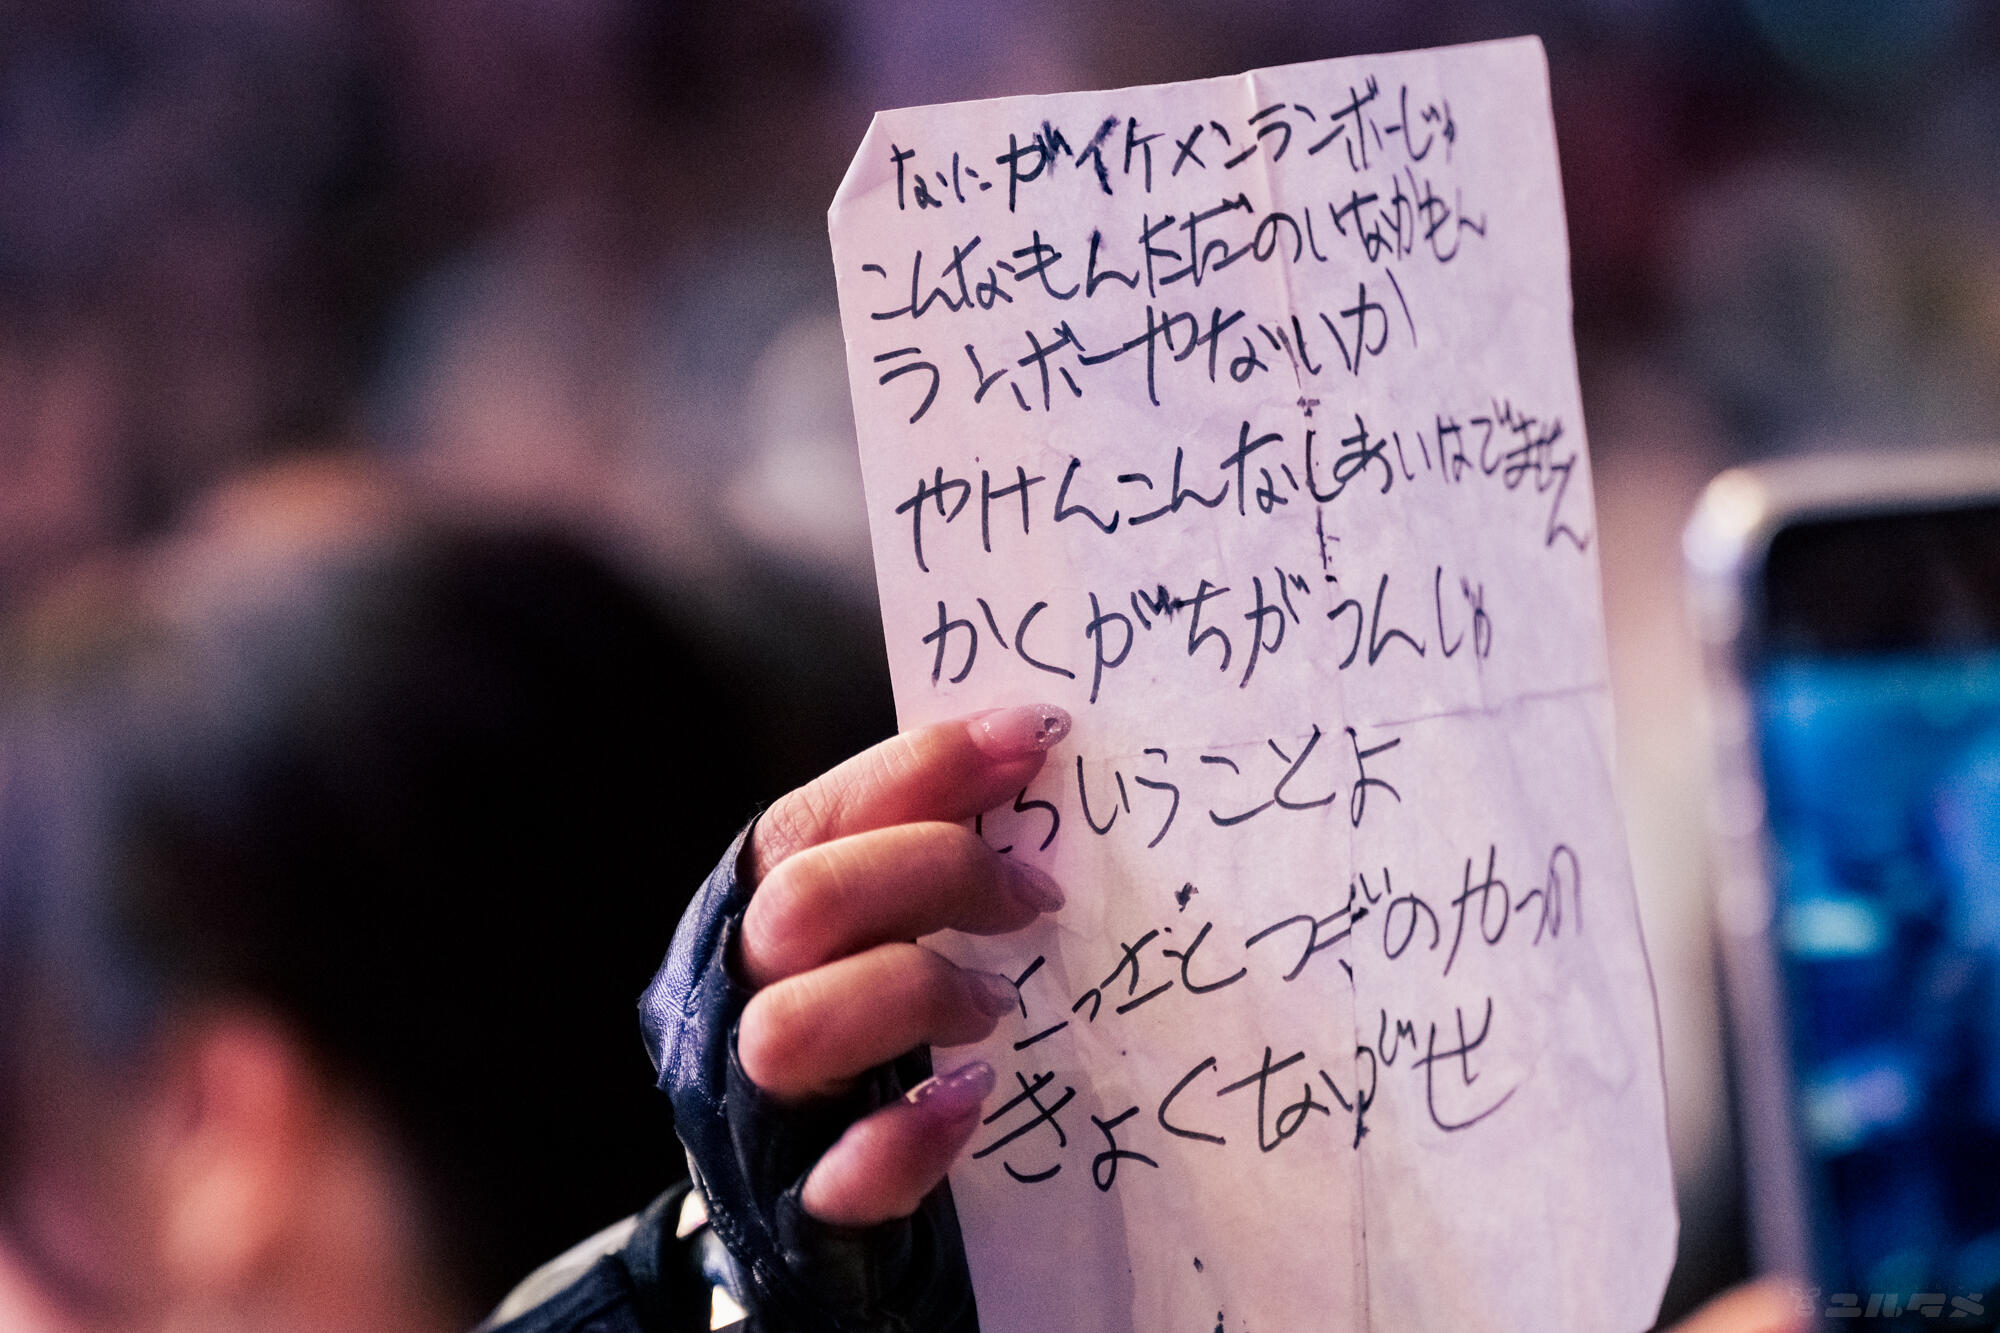 なにがイケメンランボーじゃ
こんなもんただのいなかもん
ランボーやないか
やけんこんなしあいはでません
かくがちがうんじゃ
らいうことよ
とっととつぎのやつの
きょくながせ
ユルクメ